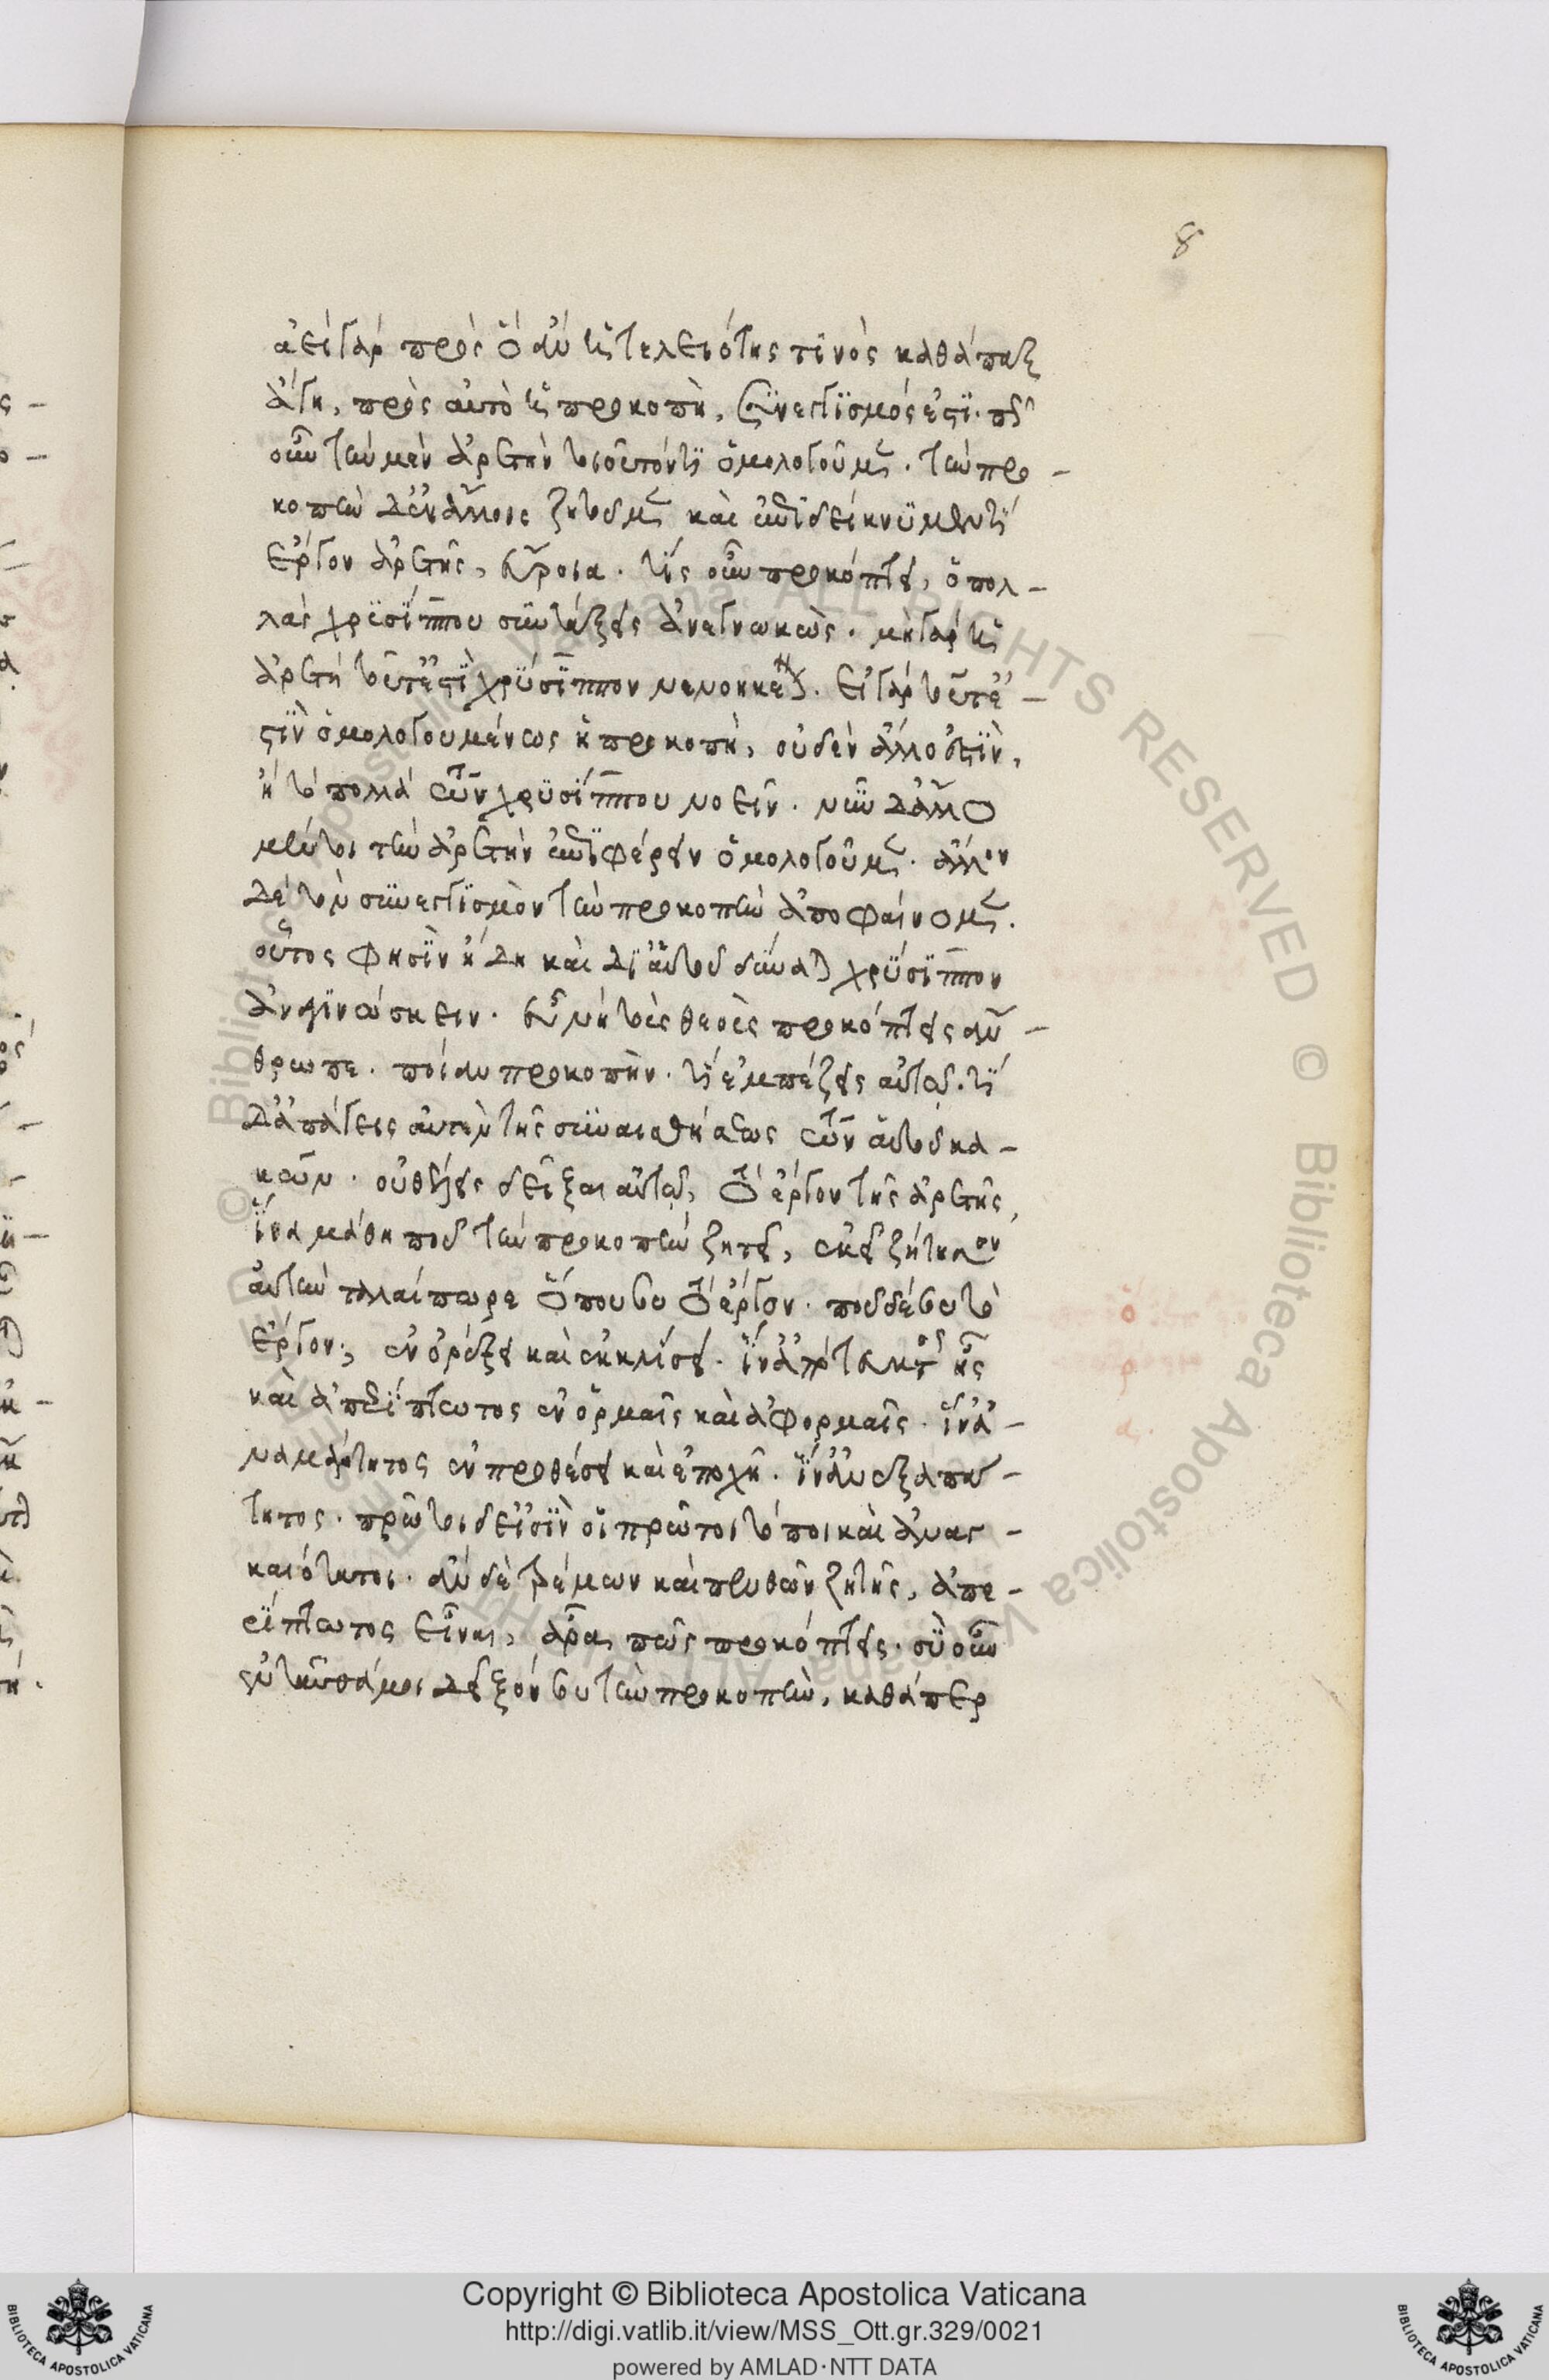 ἀεὶ γὰρ πρὸς ὃ ἂν ἡ τελειότης τινὸς καθάπαξ
ἄγη, πρὸς αὐτὸ ἡ προκοπὴ, συνεγγισμός ἐστι. πῶς
οὖν τὴν μὲν ἀρετὴν τοιοῦτόν τι ὁμολογοῦμεν. τὴν προ -
κοπὴν δ' ἐν ἄλλοις ζητοῦμεν καὶ ἐπιδείκνυμεν τί
ἔργον ἀρετῆς, εὔροια. τίς οὖν προκόπτει, ὁ πολ -
λὰς χρυσίππου συντάξεις ἀνεγνωκώς. μὴ γὰρ ἡ
ἀρετὴ τοῦτ' ἐστὶ χρύσιππον νενοηκέναι. εἰ γὰρ τοῦτ' ἐ -
στὶν ὁμολογουμένως ἡ προκοπὴ, οὐδὲν ἄλλο ἐστὶν,
ἢ τὸ πολλὰ τῶν χρυσίππου νοεῖν. νῦν δ' ἄλλο
μέν τοι τὴν ἀρετὴν ἐπιφέρειν ὁμολογοῦμεν. ἄλλον
δὲ τὸν συνεγγισμὸν τὴν προκοπὴν ἀποφαίνομεν.
οὗτος φησὶν ἤδη καὶ δι' αὑτοῦ δύναται χρύσιππον
ἀναγινώσκειν. εὖ νὴ τοὺς θεοὺς προκόπτεις ἄν -
θρωπε. ποίαν προκοπήν. τί ἐμπαίζεις αὐτῷ. τί
δ' ἀπάγεις αὐτὸν τῆς συναισθήσεως τῶν αὑτοῦ κα -
κῶν. οὐ θέλεις δεῖξαι αὐτῷ, τὸ ἔργον τῆς ἀρετῆς,
ἵνα μάθη ποῦ τὴν προκοπὴν ζητεῖ, ἐκεῖ ζήτησον
αὐτὴν ταλαίπωρε ὅπου σου τὸ ἔργον. ποῦ δέ σου τὸ
ἔργον; ἐν ὀρέξει καὶ ἐκκλίσει. ἵν' ἀπότευκτος ᾖς
καὶ ἀπερίπτωτος ἐν ὁρμαῖς καὶ ἀφορμαῖς. ἵν' ἀ -
ναμάρτητος ἐν προθέσει καὶ ἐποχῆ. ἵν' ἀνεξαπά -
τητος. πρῶτοι δ' εἰσὶν οἱ πρῶτοι τόποι καὶ ἀναγ -
καιότατοι. ἂν δὲ τρέμων καὶ πενθῶν ζητῆς, ἀπε -
ρίπτωτος εἶναι, ἄρα πῶς προκόπτεις. σὺ οὖν
ἐνταῦθά μοι δεῖξόν σου τὴν προκοπὴν, καθάπερ
8
ὁ
ρ
α.
Copyright © Biblioteca Apostolica Vaticana
http://digi.vatlib.it/view/MSS_Ott.gr.329/0021
powered by AMLAD·NTT DATA